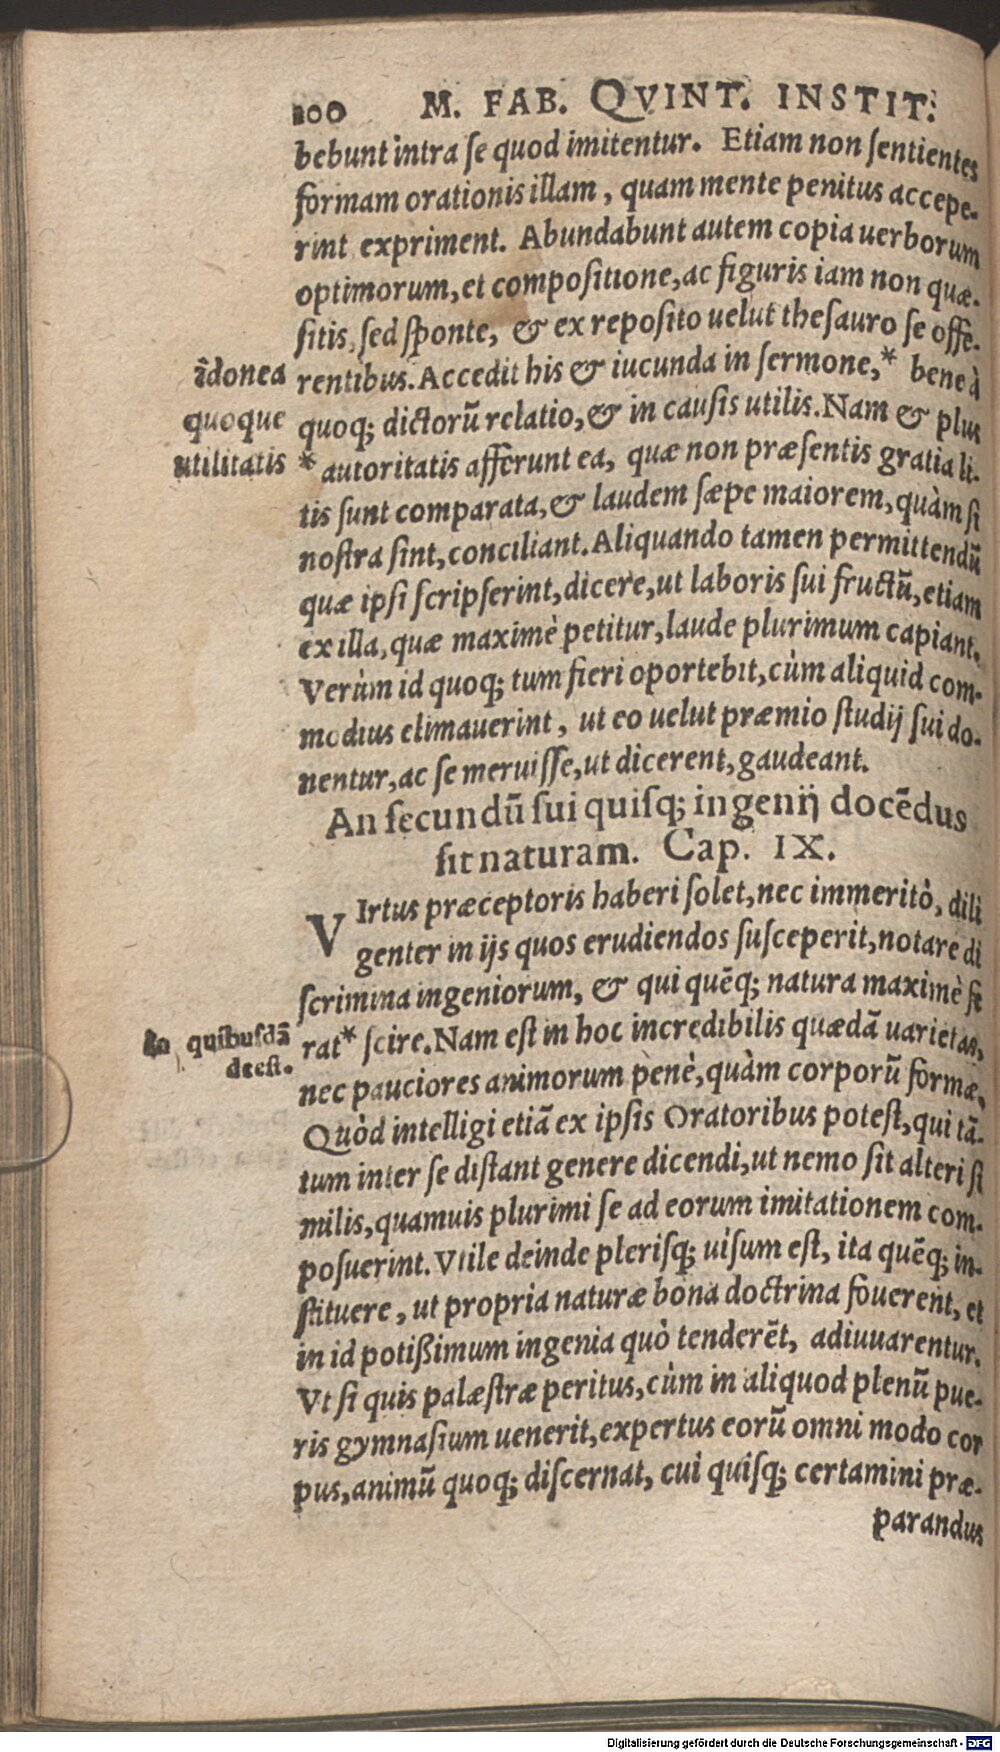 100 M. FAB. QVINT. INSTIT.
bebunt intra se quod imitentur. Etiam non sentientes
formam orationis illam, quam mente penitus accepe-
rint expriment. Abundabunt autem copia uerborum
optimorum, et compositione, ac figuris iam non quæ-
sitis, sed sponte, & ex reposito uelut thesauro se offe-
rentibus. Accedit his & iucunda in sermone,* bene à
quoq; dictorũ relatio, & in causis utilis. Nam & plus
*autoritatis afferunt ea, quæ non præsentis gratia li-
tis sunt comparata, & laudem sæpe maiorem, quàm si
nostra sint, conciliant. Aliquando tamen permittendũ
quæ ipsi scripserint, dicere, ut laboris sui fructũ, etiam
ex illa, quæ maximè petitur, laude plurimum capiant.
Verùm id quoq; tum fieri oportebit, cùm aliquid com-
modius elimauerint, ut eo uelut præmio studij sui do-
nentur, ac se meruisse, ut dicerent, gaudeant.
ĩdonea
quoque
utilitatis
An secundũ sui quisq; ingenij docẽdus
sit naturam. Cap. IX.
VIrtus præceptoris haberi solet, nec immeritò, dili
genter in ijs quos erudiendos susceperit, notare di
scrimina ingeniorum, & qui quẽq; natura maximè fe
rat* scire. Nam est in hoc incredibilis quædã uarietas,
nec pauciores animorum penè, quàm corporũ formæ.
Quòd intelligi etiã ex ipsis Oratoribus potest, qui tã-
tum inter se distant genere dicendi, ut nemo sit alteri si
milis, quamuis plurimi se ad eorum imitationem com-
posuerint. Vtile deinde plerisq; uisum est, ita quẽq; in-
stituere, ut propria naturæ bona doctrina fouerent, et
in id potißimum ingenia quò tenderẽt, adiuuarentur.
Vt si quis palæstræ peritus, cùm in aliquod plenũ pue-
ris gymnasium uenerit, expertus eorũ omni modo cor
pus, animũ quoq; discernat, cui quisq; certamini præ-
parandus
In quibusdã
deest.
Digitalisierung gefördert durch die Deutsche Forschungsgemeinschaft - DFG